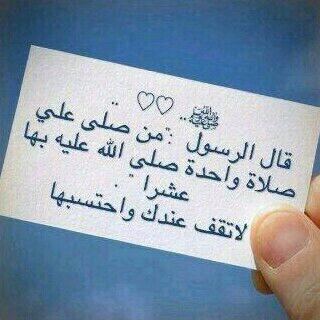 ♡♡ ..ﷺ
قال الرسول :"من صلى علي
صلاة واحدة صلى الله عليه بها
عشرا".
لاتقف عندك واحتسبها